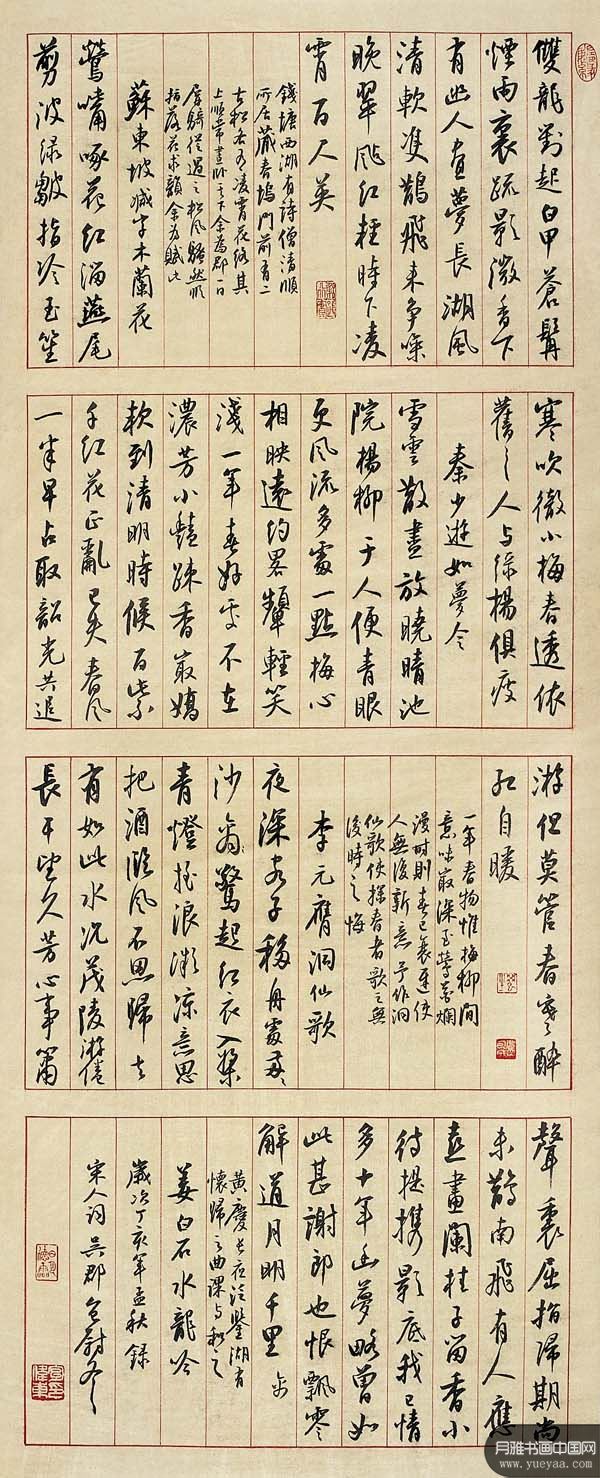 雙龍對起白甲蒼髯
煙雨裏疏影微香下
有幽人晝夢長湖風
清軟雙鵲飛來爭噪
晚翠颭紅輕時下凌
霄百尺英
錢塘西湖有詩僧清順
所居藏春塢門前有二
古松各有凌霄花絡其
上順常晝臥其下余為郡一日
屏騎從過之松風騷然順
指落花求韻余為賦此
蘇東坡減字木蘭花
鶯嘴啄花紅溜燕尾
剪波綠皺指冷玉笙
寒吹徹小梅春透依
舊〻人與綠楊俱瘦
秦少游如夢令
雪雲散盡放曉晴池
院楊柳于人便青眼
更風流多處一點梅心
相映遠約略顰輕笑
淺一年春好處不在
濃芳小豔疎香最嬌
軟到清明時候百紫
千紅花正亂已失春風
一半早占取韶光共追
游但莫管春寒醉
紅自暖
一年春物惟梅柳間
意味最深至鶯花爛
漫時則春已衰遲使
人無復新意予作洞
仙歌使探春者歌之無
後時之悔
李元膺洞仙歌
夜深客子移舟處兩〻
沙禽驚起紅衣入槳
青燈搖浪微涼意思
把酒臨風不思歸去
有如此水況茂陵游倦
長干望久芳心事簫
聲裏屈指歸期尚
未鵲南飛有人應
喜畫闌桂子留香小
待提攜影底我已情
多十年幽夢略曾如
此甚謝郎也恨飄零
解道月明千里
黃慶長夜泛鑒湖有
懷歸之曲課予和之
姜白石水龍吟
歲次丁亥年孟秋錄
宋人詞吳郡
月雅书画中国网
www.yueyaa.com